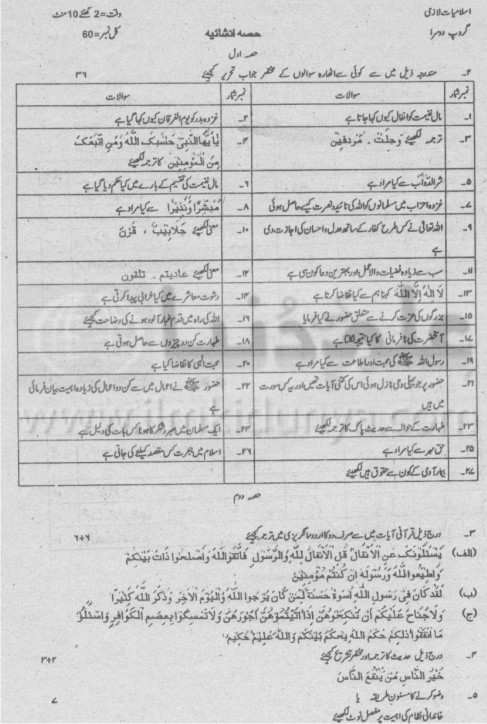 اسلامیات لازمی
وقت=2 گھنٹے 10 منٹ
گروپ دوسرا
حصہ انشائیہ
کل نمبر=60
حصہ اول
۲۔ مندرجہ ذیل میں سے کوئی سے اٹھارہ سوالوں کے مختصر جواب تحریر کیجیئے ۳۶
نمبر شمار سوالات نمبر شمار سوالات
۱۔ مال غنیمت کو انفال کیوں کہا جاتا ہے ۲۔ غزوہ بدر کو یوم الفرقان کیوں کہا گیا ہے
۳۔ ترجمہ لکھیئے وَجِلَتْ۔ مُرْدِفِيْنَ ۴۔ يٰاَيُّهَا النَّبِيُّ حَسْبُكَ اللّٰهُ وَمَنِ اتَّبَعَكَ
مِنَ الْمُؤْمِنِيْنَ کا ترجمہ لکھیئے
۵۔ شر الدواب سے کیا مراد ہے ۶۔ مال غنیمت کی تقسیم کے بارے میں کیا حکم دیا گیا ہے
۷۔ غزوہ احزاب میں مسلمانوں کو اللہ کی تائید و نصرت کیسے حاصل ہوئی ۸۔ مُبَشِّرًا وَّنَذِيْرًا سے کیا مراد ہے
۹۔ اللہ تعالیٰ نے کس طرح کفار کے ساتھ عدل و احسان کی اجازت دی
ہے
۱۰۔ معنی لکھیئے جَلَابِيْبَ ، قَرْنَ
۱۱۔ سب سے زیادہ فضیلت والا عمل اور بہترین دعا کون سی ہے ۱۲۔ معنی لکھیئے عادیتم ۔ تلقون
۱۳۔ لَا اِلٰهَ اِلَّا اللّٰهُ کہنا ہم سے کیا تقاضا کرتا ہے ۱۴۔ رشوت معاشرے میں کیا خرابی پیدا کرتی ہے
۱۵۔ بزرگوں کی عزت کرنے سے متعلق حضور نے کیا فرمایا ۱۶۔ اللہ کی راہ میں قدم غبار آلود ہونے کی وضاحت کیجیئے
۱۷۔ آنحضرت کی نافرمانی کا کیا نتیجہ نکلتا ہے ۱۸۔ طہارت کن دو چیزوں سے حاصل ہوتی ہے
۱۹۔ رسول اللہ ﷺ کی محبت اور اطاعت سے کیا مراد ہے ۲۰۔ محبت الٰہی کا تقاضا کیا ہے
۲۱۔ حضور پر جو پہلی وحی نازل ہوئی اس کی کتنی آیات تھیں اور یہ کس سورت
میں ہیں
۲۲۔ حضور ﷺ نے اعمال میں سے کن دو اعمال کی زیادہ اہمیت بیان فرمائی
ہے
۲۳۔ طہارت کے حوالے سے حدیث پاک کا ترجمہ لکھیئے ۲۴۔ ایک مسلمان میں صبر و شکر کا ہونا کس بات کی دلیل ہے
۲۵۔ حق مہر سے کیا مراد ہے ۲۶۔ اسلام میں ہجرت کس مقصد کیلئے کی جاتی ہے
۲۷۔ بیمار آدمی کے کون سے حقوق ہیں لکھیئے
حصہ دوم
۳۔ درج ذیل قرآنی آیات میں سے صرف دو کا اردو یا انگریزی میں ترجمہ کیجیئے ۶+۶
(الف) يَسْئَلُوْنَكَ عَنِ الْاَنْفَالِ قُلِ الْاَنْفَالُ لِلّٰهِ وَالرَّسُوْلِ فَاتَّقُوا اللّٰهَ وَاَصْلِحُوْا ذَاتَ بَيْنِكُمْ
وَاَطِيْعُوا اللّٰهَ وَرَسُوْلَهٗ اِنْ كُنْتُمْ مُّؤْمِنِيْنَ
(ب) لَقَدْ كَانَ لَكُمْ فِيْ رَسُوْلِ اللّٰهِ اُسْوَةٌ حَسَنَةٌ لِّمَنْ كَانَ يَرْجُوا اللّٰهَ وَالْيَوْمَ الْاٰخِرَ وَذَكَرَ اللّٰهَ كَثِيْرًا
(ج) وَلَا جُنَاحَ عَلَيْكُمْ اَنْ تَنْكِحُوْهُنَّ اِذَا اٰتَيْتُمُوْهُنَّ اُجُوْرَهُنَّ وَلَا تُمْسِكُوْا بِعِصَمِ الْكَوَافِرِ وَاسْئَلُوْا
مَا اَنْفَقْتُمْ ذٰلِكُمْ حُكْمُ اللّٰهِ يَحْكُمُ بَيْنَكُمْ وَاللّٰهُ عَلِيْمٌ حَكِيْمٌ
۴۔ درج ذیل حدیث کا ترجمہ اور مختصر تشریح کیجیئے ۲+۳
خَيْرُ النَّاسِ مَنْ يَّنْفَعُ النَّاسَ
۵۔ وضو کرنے کا مسنون طریقہ یا ۷
خاندانی نظام کی اہمیت پر مفصل نوٹ لکھیئے